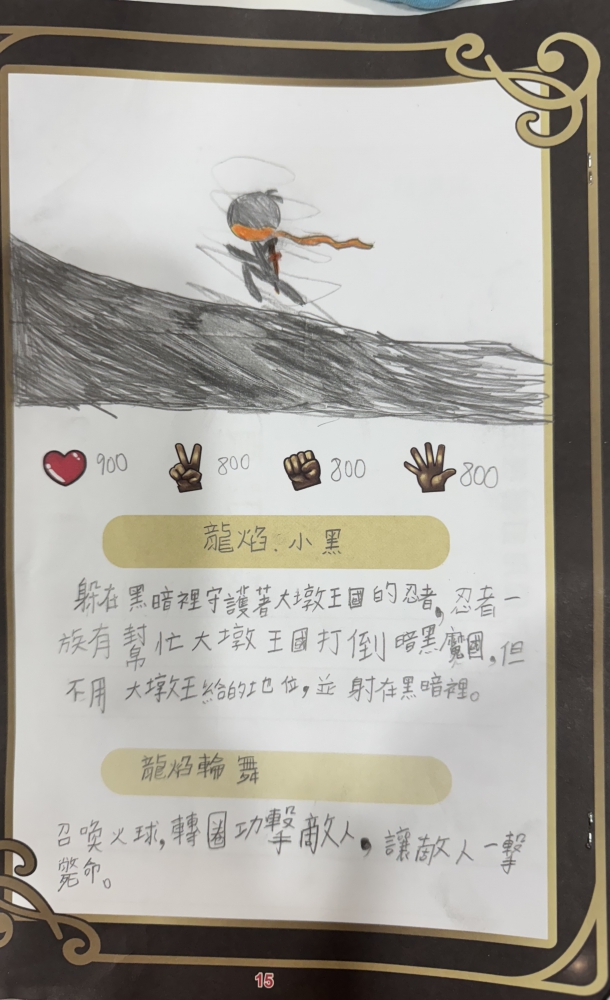 900 800 800 800
龍焰.小黑
躲在黑暗裡守護著大墩王國的忍者,忍者一
族有幫忙大墩王國打倒暗黑魔國,但
不用大墩王給的地位,並射在黑暗裡。
龍焰輪舞
召喚火球,轉圈功擊敵人,讓敵人一擊
斃命。
15